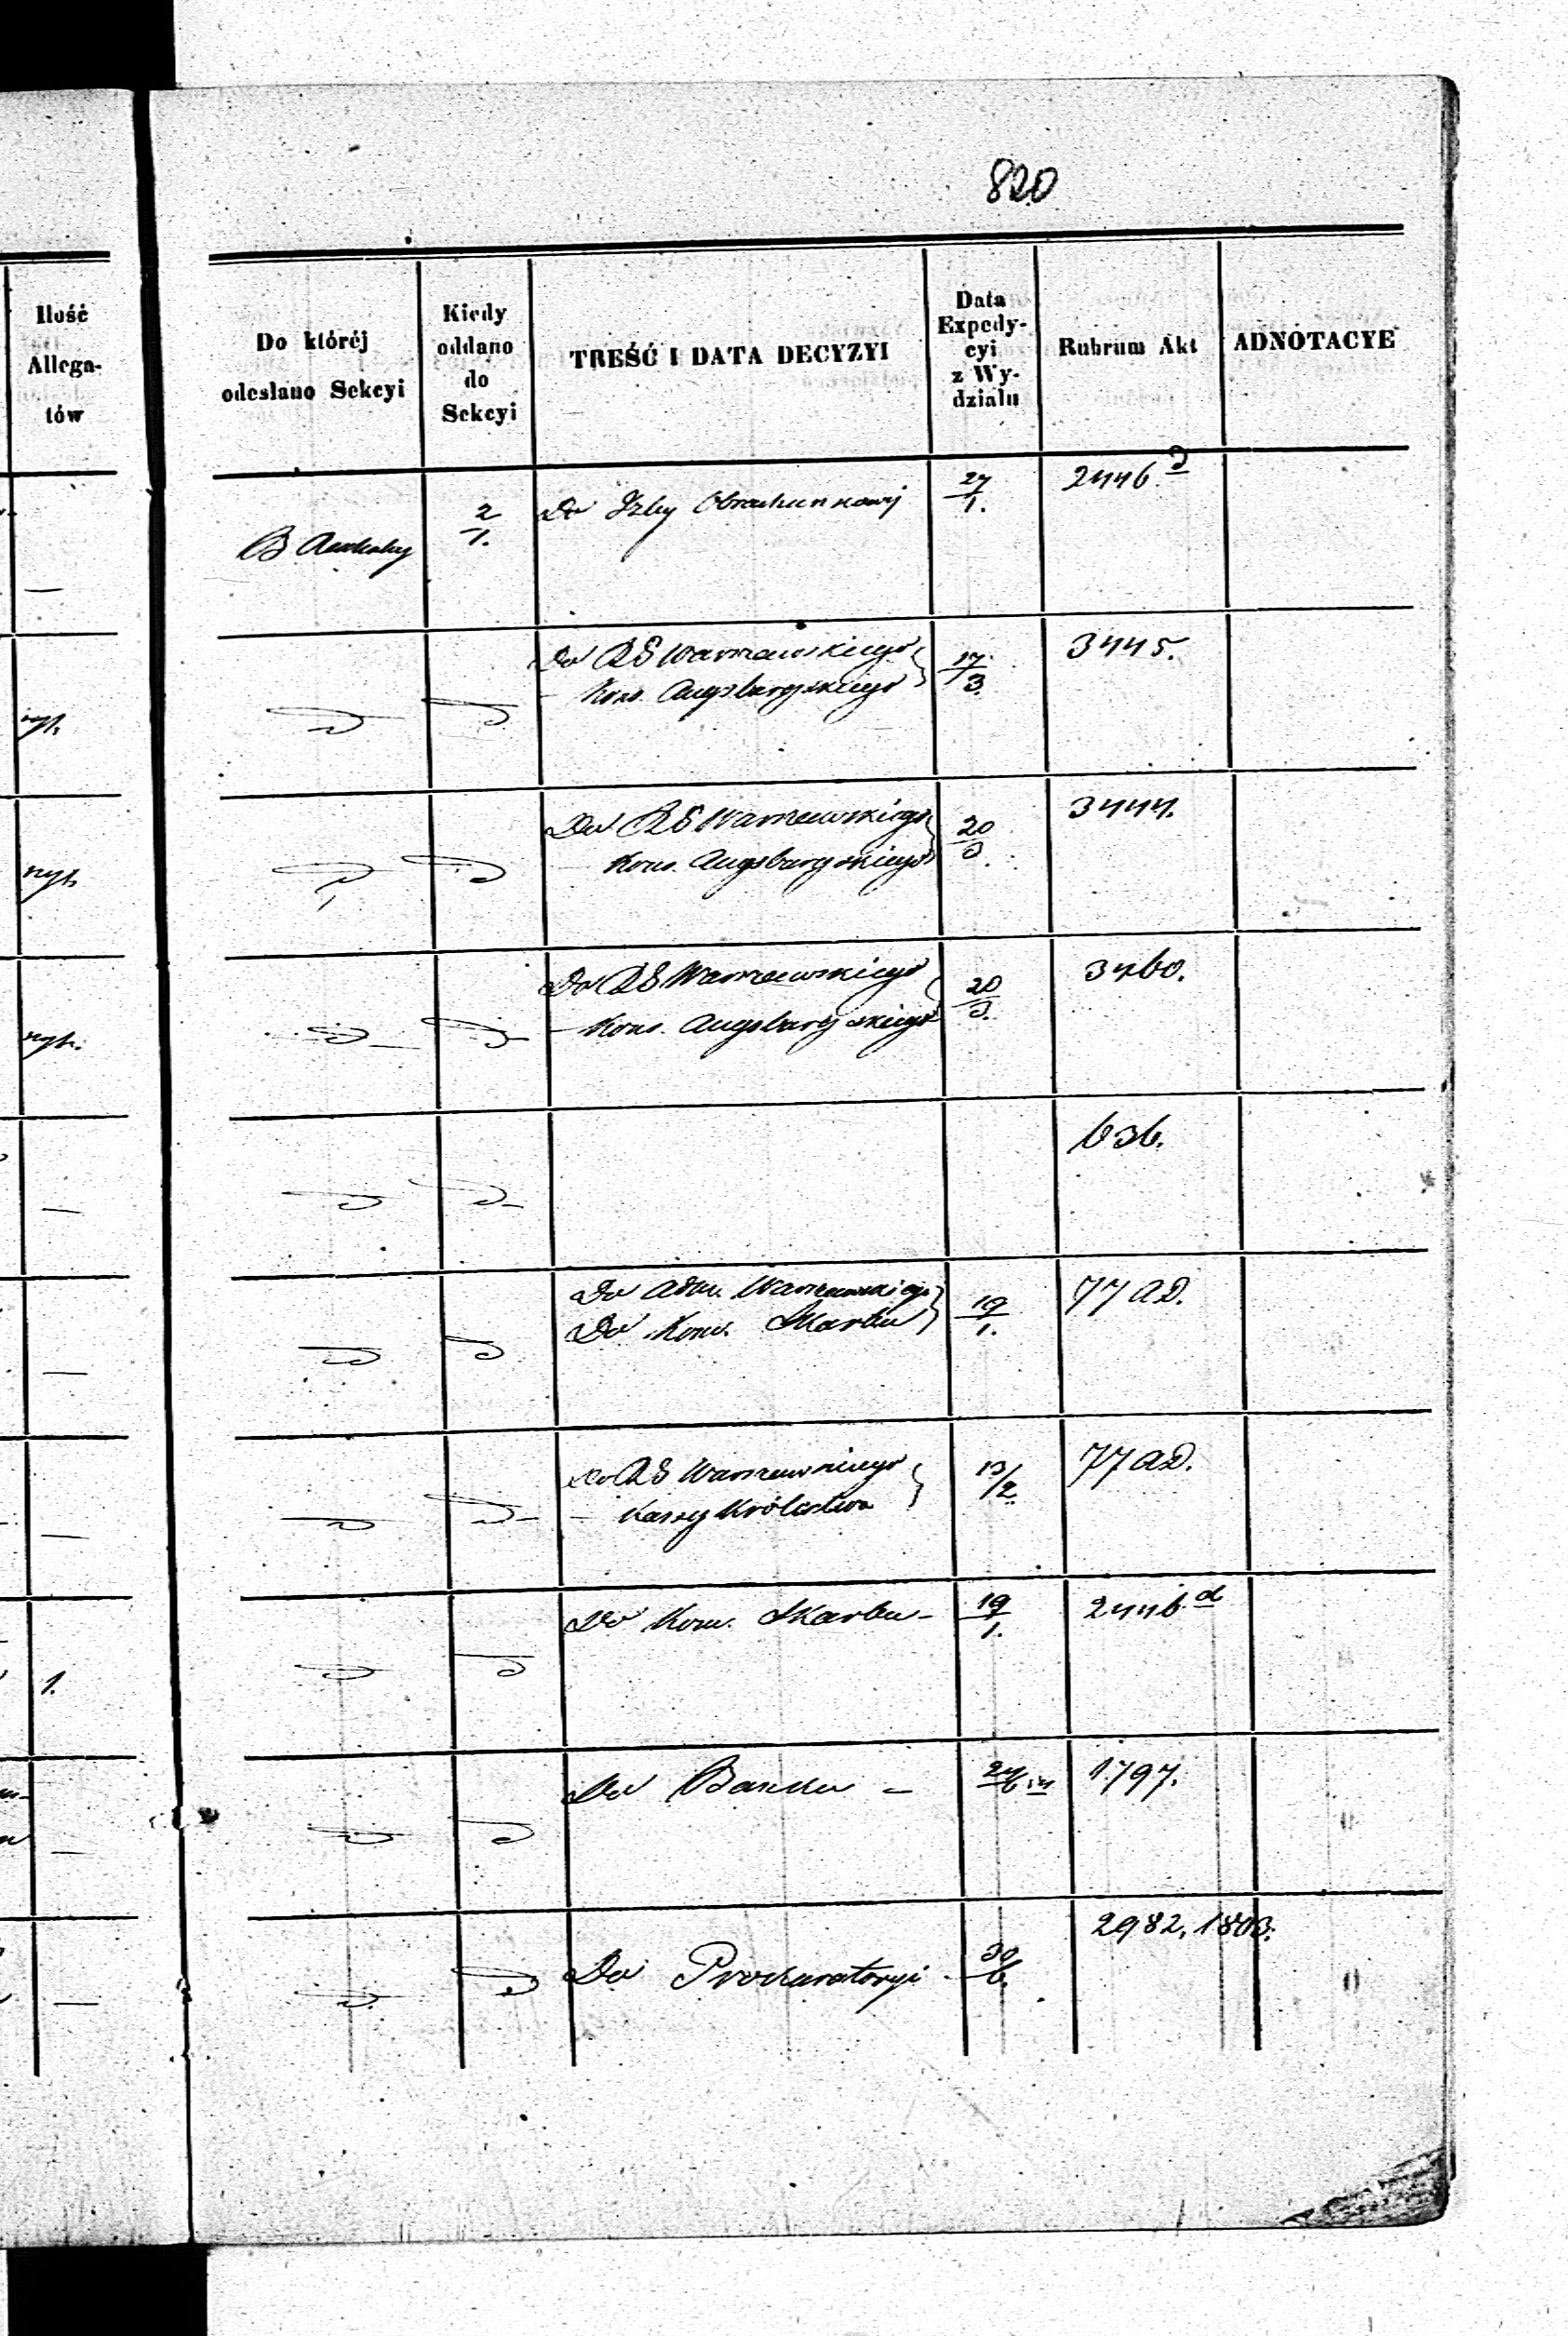 820
Ilość
Allega-
tów
Do któréj
odesłano Sekcyi
Kiedy
oddano
do
Sekcyi
TREŚĆ I DATA DECYZYI
Data
Expedy-
cyi
z Wy-
działu
Rubrum Akt
ADNOTACYE
B
2/1.
Do Izby Obrachunkowej
27/1.
2446 d
Do RG Warszawskiego
Kons. Augsburgskiego
17/3.
3445.
Do RG Warszawskiego
Kons. Augsburgskiego
20/3.
3444.
Do RG Warszawskiego
Kons. Augsburgskiego
20/3.
3460.
636.
Do Warszawskiego
Do Kom. Skarbu
19/1.
77 AD.
Do RG Warszawskiego
Kassy Królestwa
13/2.
77 AD.
1.
Do Kom. Skarbu -
19/1.
2446 d
Do Banku -
1797.
Do Prokuratoryi
30/6.
2982, 1803.